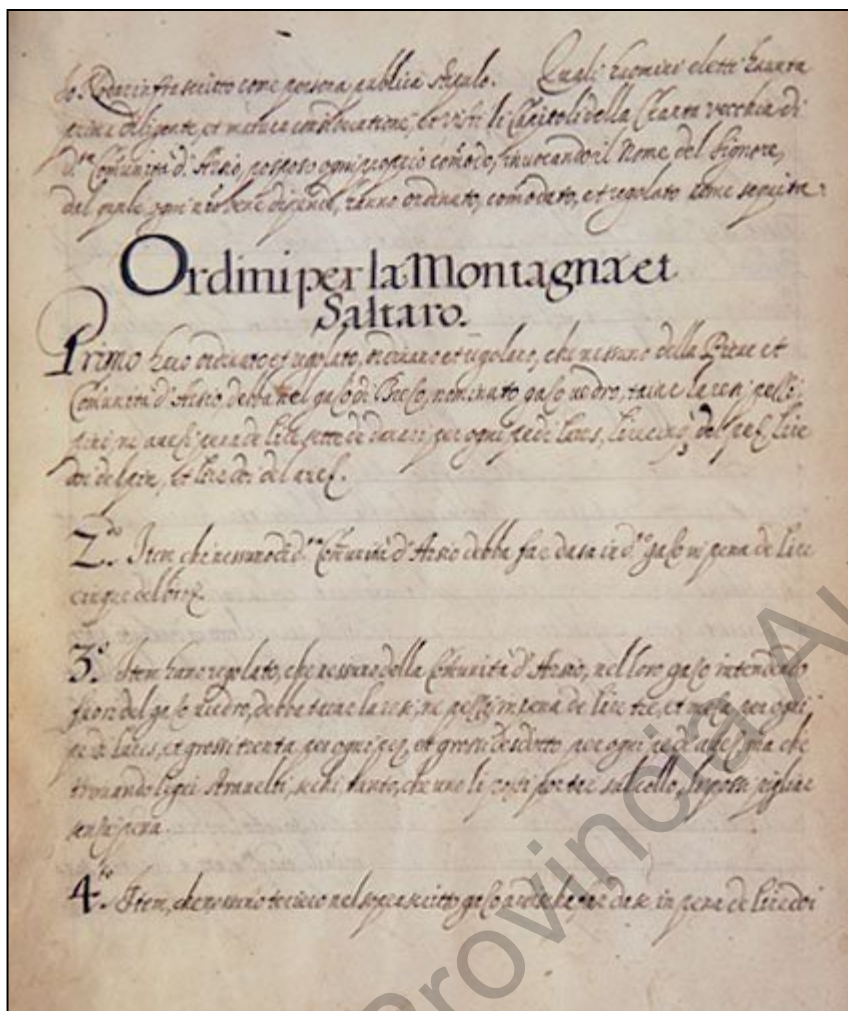 Io Nodar infrascritto come persona publica stipulo. Quali huomini eletti havuta
prima diligente, et matura consideratione, et visti li Capitoli della Charta vecchia di
d.ta Comunità d'Arsio, posposo ogni proprio comodo, invocando il Nome del Signore,
dal quale ogni bene dipende, hanno ordinato, comodato, et regolato come seguita:
Ordini per la Montagna et
Saltaro.
Primo hano ordinato et regolato, ordinano et regolano, che nessuno della Pieve et
Comunità d'Arsio, debba nel gaso di nominato gaso nedro, taiar laresi, pessi,
pini, ne avesi pena de lire sette de danari per ogni pe di lares, lire cinq. del pez, lire
doi del pin, et lire doi del avez.
2.do Item, che nessuno di d.ta Comunità d'Arsio debba far dasa in d.to gaso in pena de lire
cinque del
3.o Item hano regolato, che nessuno della Comunità d'Arsio, nel loro gaso intendendo
fuora del gaso nedro, debba taiar laresi, ne pessi in pena de lire tre, et meza per ogni
pe di lares, et grossi trenta per ogni pez, et grossi desdotto per ogni pe di avez, ma che
trovando legni sechi tanto, che uno li possi portar sul collo, li possi pigliar
senza pena
4.to Item, che nessuno nel soprascritto gaso far dase in pena de lire doi
Provincia Au